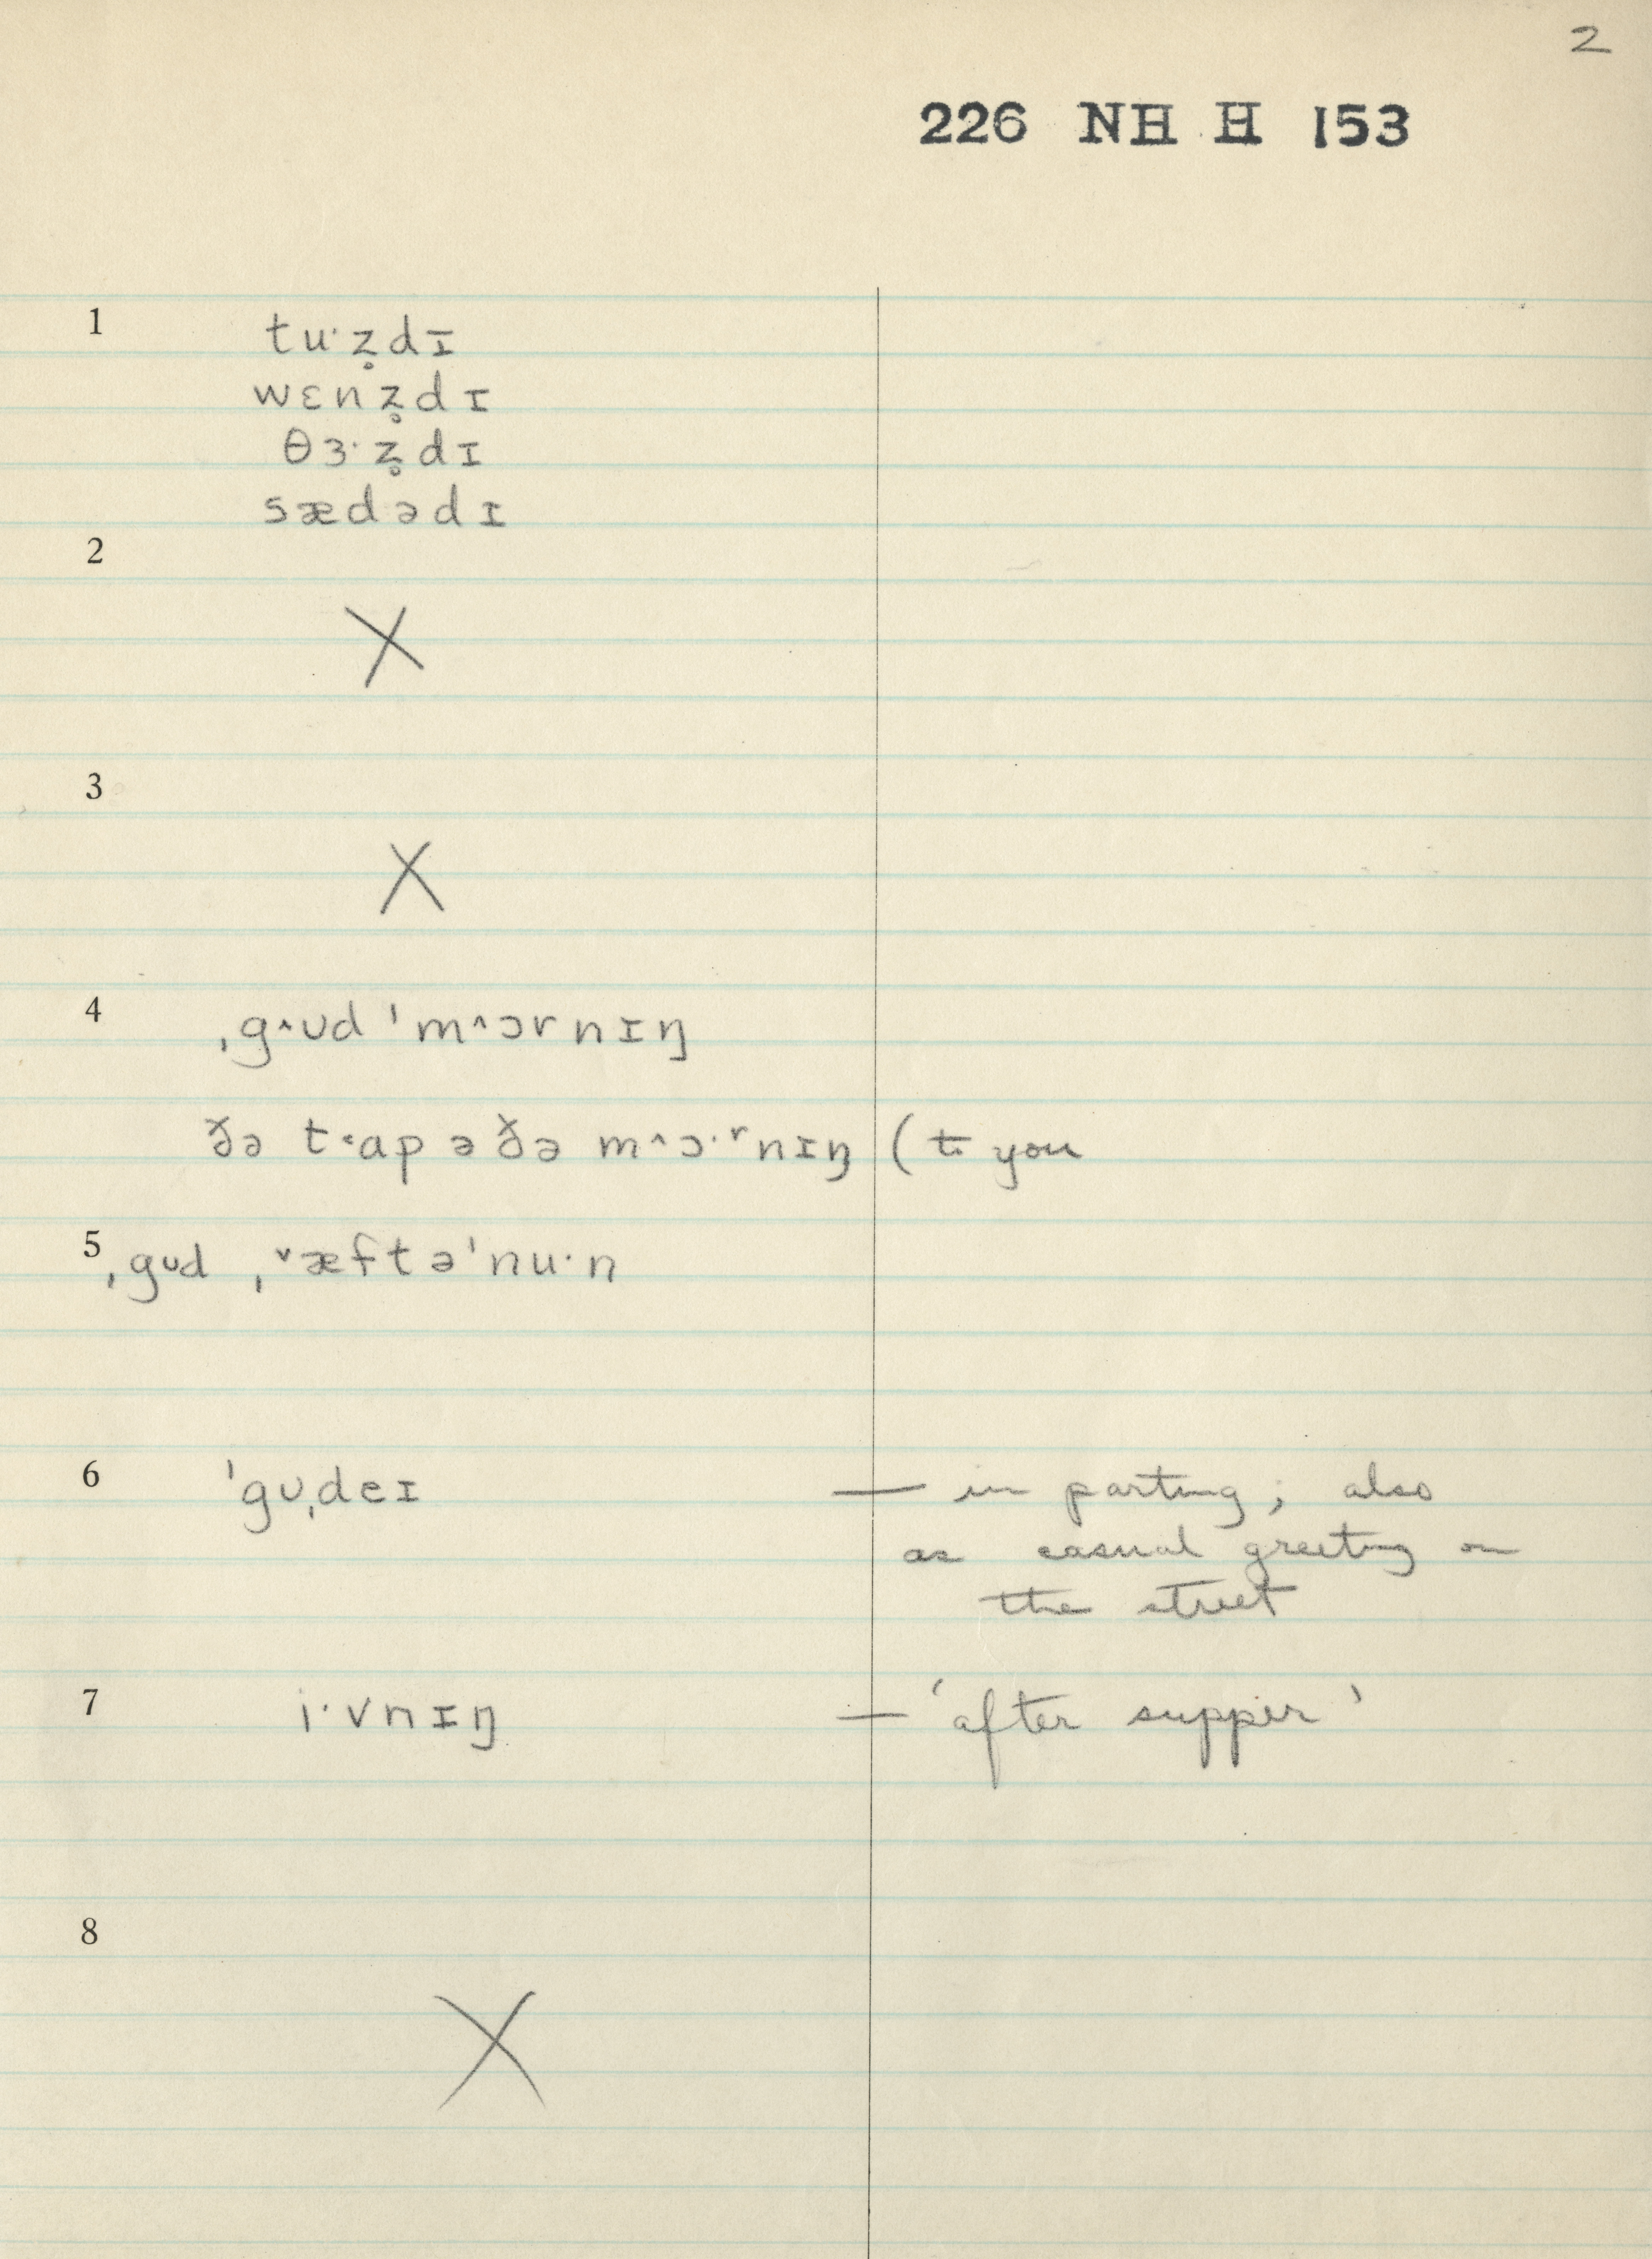 2
226 NH H 153
1
tu·z̥dɪ
wɛnz̥dɪ
θɜ·z̥dɪ
sædədɪ
2
X
3
X
4 ˌg^ʊd ˈm^ɔrnɪŋ
ðə t˂ɑp ə ðə m^ɔ·ʳnɪŋ (to you
5 ˌgʊd ˌˇæftəˈnu·n
6 ˈgʊˌdeɪ — in parting; also
as casual greeting on
the street
7 i·vnɪŋ — 'after supper'
8
X